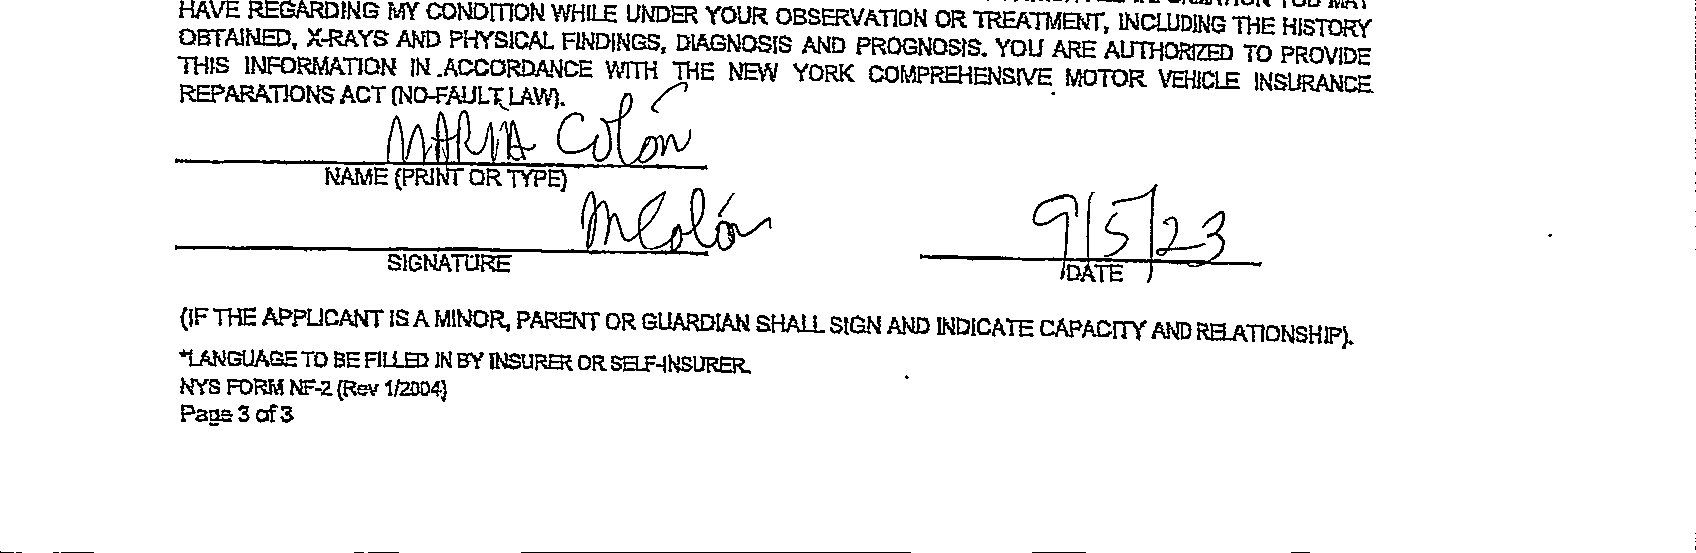 HAVE REGARDING MY CONDITION WHILE UNDER YOUR OBSERVATION OR TREATMENT, INCLUDING THE HISTORY
OBTAINED, X-RAYS AND PHYSICAL FINDINGS, DIAGNOSIS AND PROGNOSIS. YOU ARE AUTHORIZED TO PROVIDE
THIS INFORMATION IN ACCORDANCE WITH THE NEW YORK COMPREHENSIVE MOTOR VEHICLE INSURANCE
REPARATIONS ACT (NO-FAULT LAW).
MARIA Colón
NAME (PRINT OR TYPE)
MColón 9/5/23
SIGNATURE DATE
(IF THE APPLICANT IS A MINOR, PARENT OR GUARDIAN SHALL SIGN AND INDICATE CAPACITY AND RELATIONSHIP).
*LANGUAGE TO BE FILLED IN BY INSURER OR SELF-INSURER.
NYS FORM NF-2 (Rev 1/2004)
Page 3 of 3